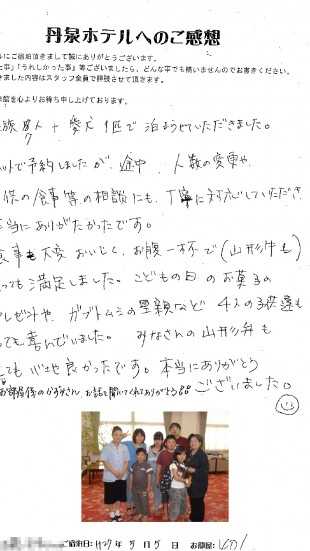 丹泉ホテルへのご感想
ルにご宿泊頂きまして誠にありがとうございます。
た事』『うれしかった事』等ございましたら、どんな事でも構いませんのでお書きください。
きました内容はスタッフ全員で拝読させて頂きます。
来館を心よりお待ち申し上げております。
族 7人 + 愛犬 1匹で泊まらせていただきました。
ットで予約しましたが、途中、人数の変更や、
供の食事等の相談にも、丁寧に対応していただき、
当にありがたかったです。
食事も大変おいしく、お腹一杯で(山形牛も)
ても満足しました。こどもの日のお菓子の
プレゼントや、カブトムシの里親など 4人の子供達も
ても喜んでいました。 みなさんの山形弁も
ても心地良かったです。本当にありがとう
ございました。
お部屋係のかずみさん、お話を聞いてくれてありがとう
ご宿泊日: H27年 5月5日 お部屋: